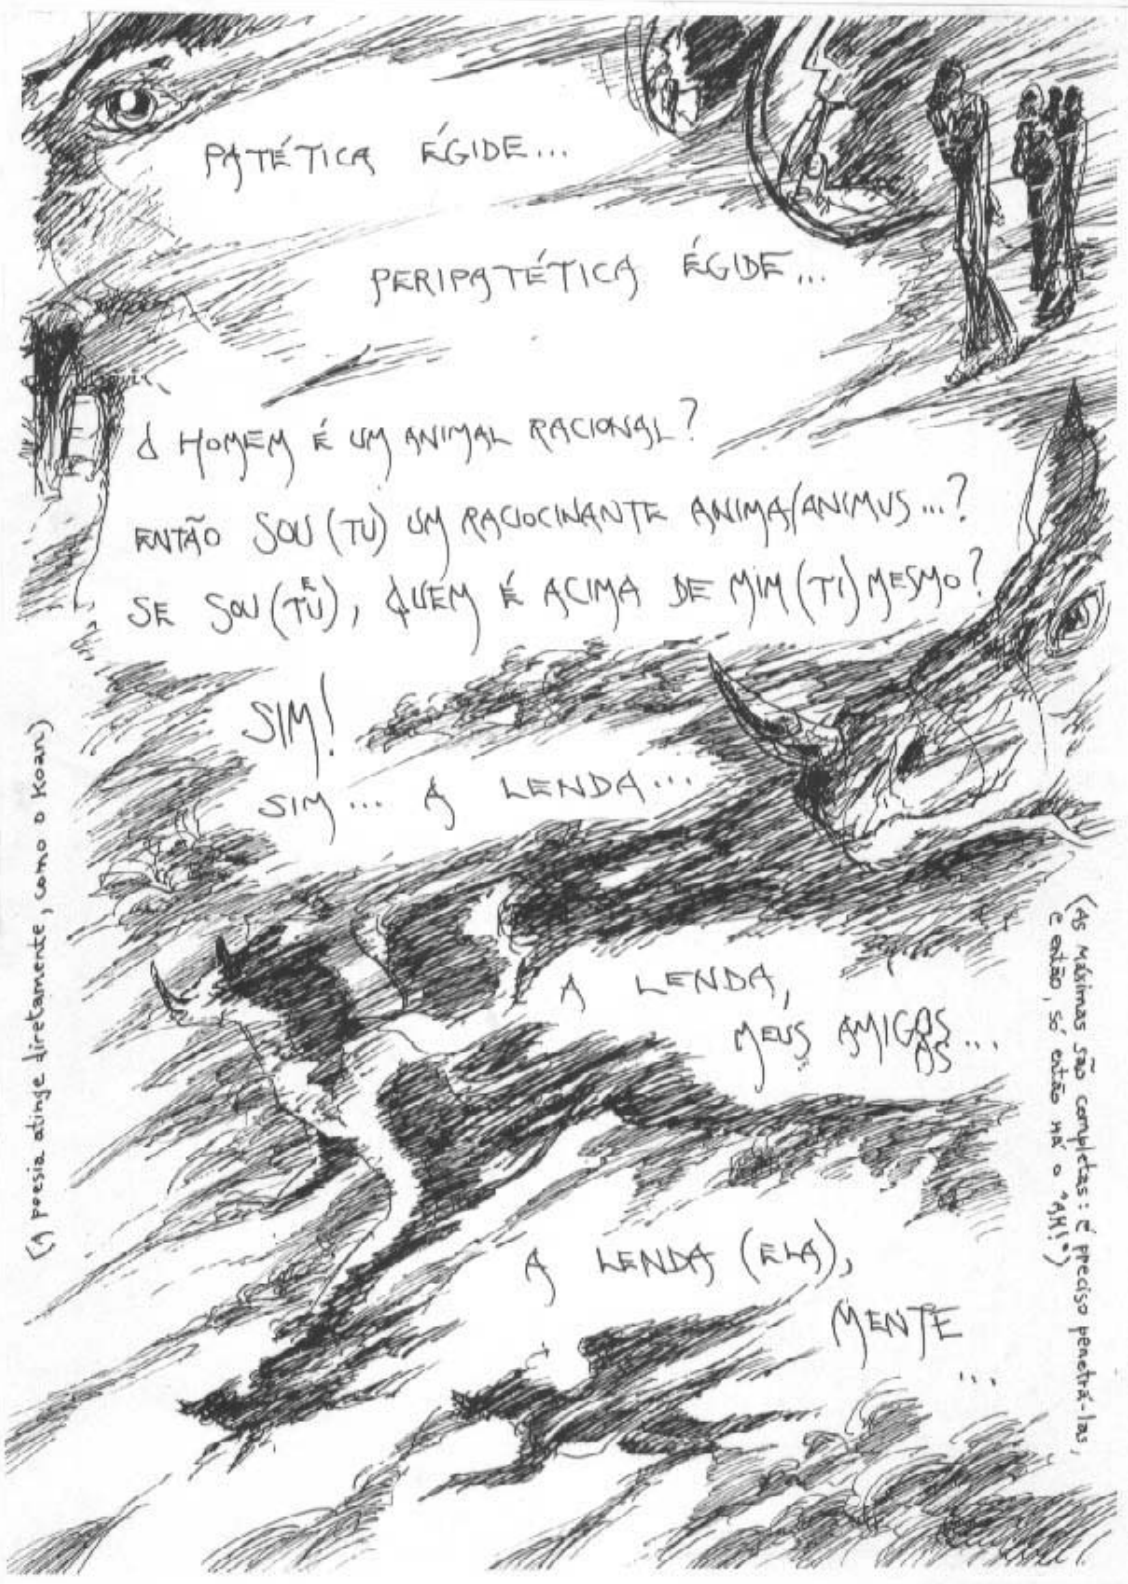 PATÉTICA ÉGIDE...
PERIPATÉTICA ÉGIDE...
O HOMEM É UM ANIMAL RACIONAL?
ENTÃO SOU (TU) UM RACIOCINANTE ANIMA/ANIMUS...?
SE SOU (TU E), QUEM É ACIMA DE MIM (TI) MESMO?
SIM!
SIM... A LENDA...
A LENDA,
MEUS AMIGOS
AS...
A LENDA (ELA),
MENTE
...
(A poesia atinge diretamente, como o koan)
(AS Máximas são completas: é preciso penetrá-las,
e então, só então há o "AH!")